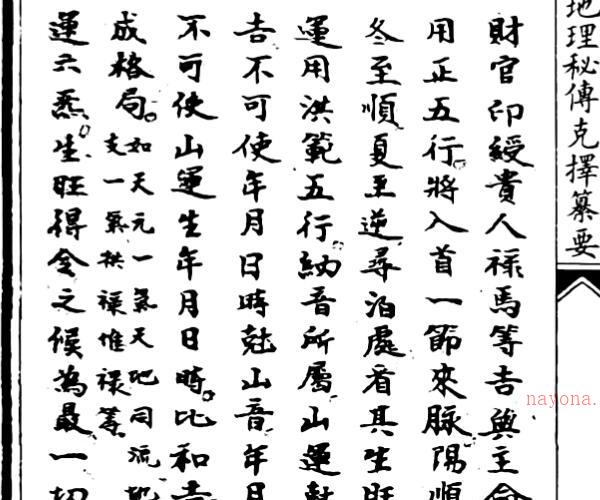 地理秘傳克擇纂要
財官印綬貴人祿馬等吉與主命
用正五行將入首一節來脉陽順
冬至順夏至逆尋泊處看其生旺
運用洪範五行納音所屬山運尅
吉不可使年月日時尅山音年月
不可使山運生年月日時比和吉
成格局如天元一氣天地同流地
支一氣拱祿惟祿等
運六炁生旺得令之候為最一切
nayona.